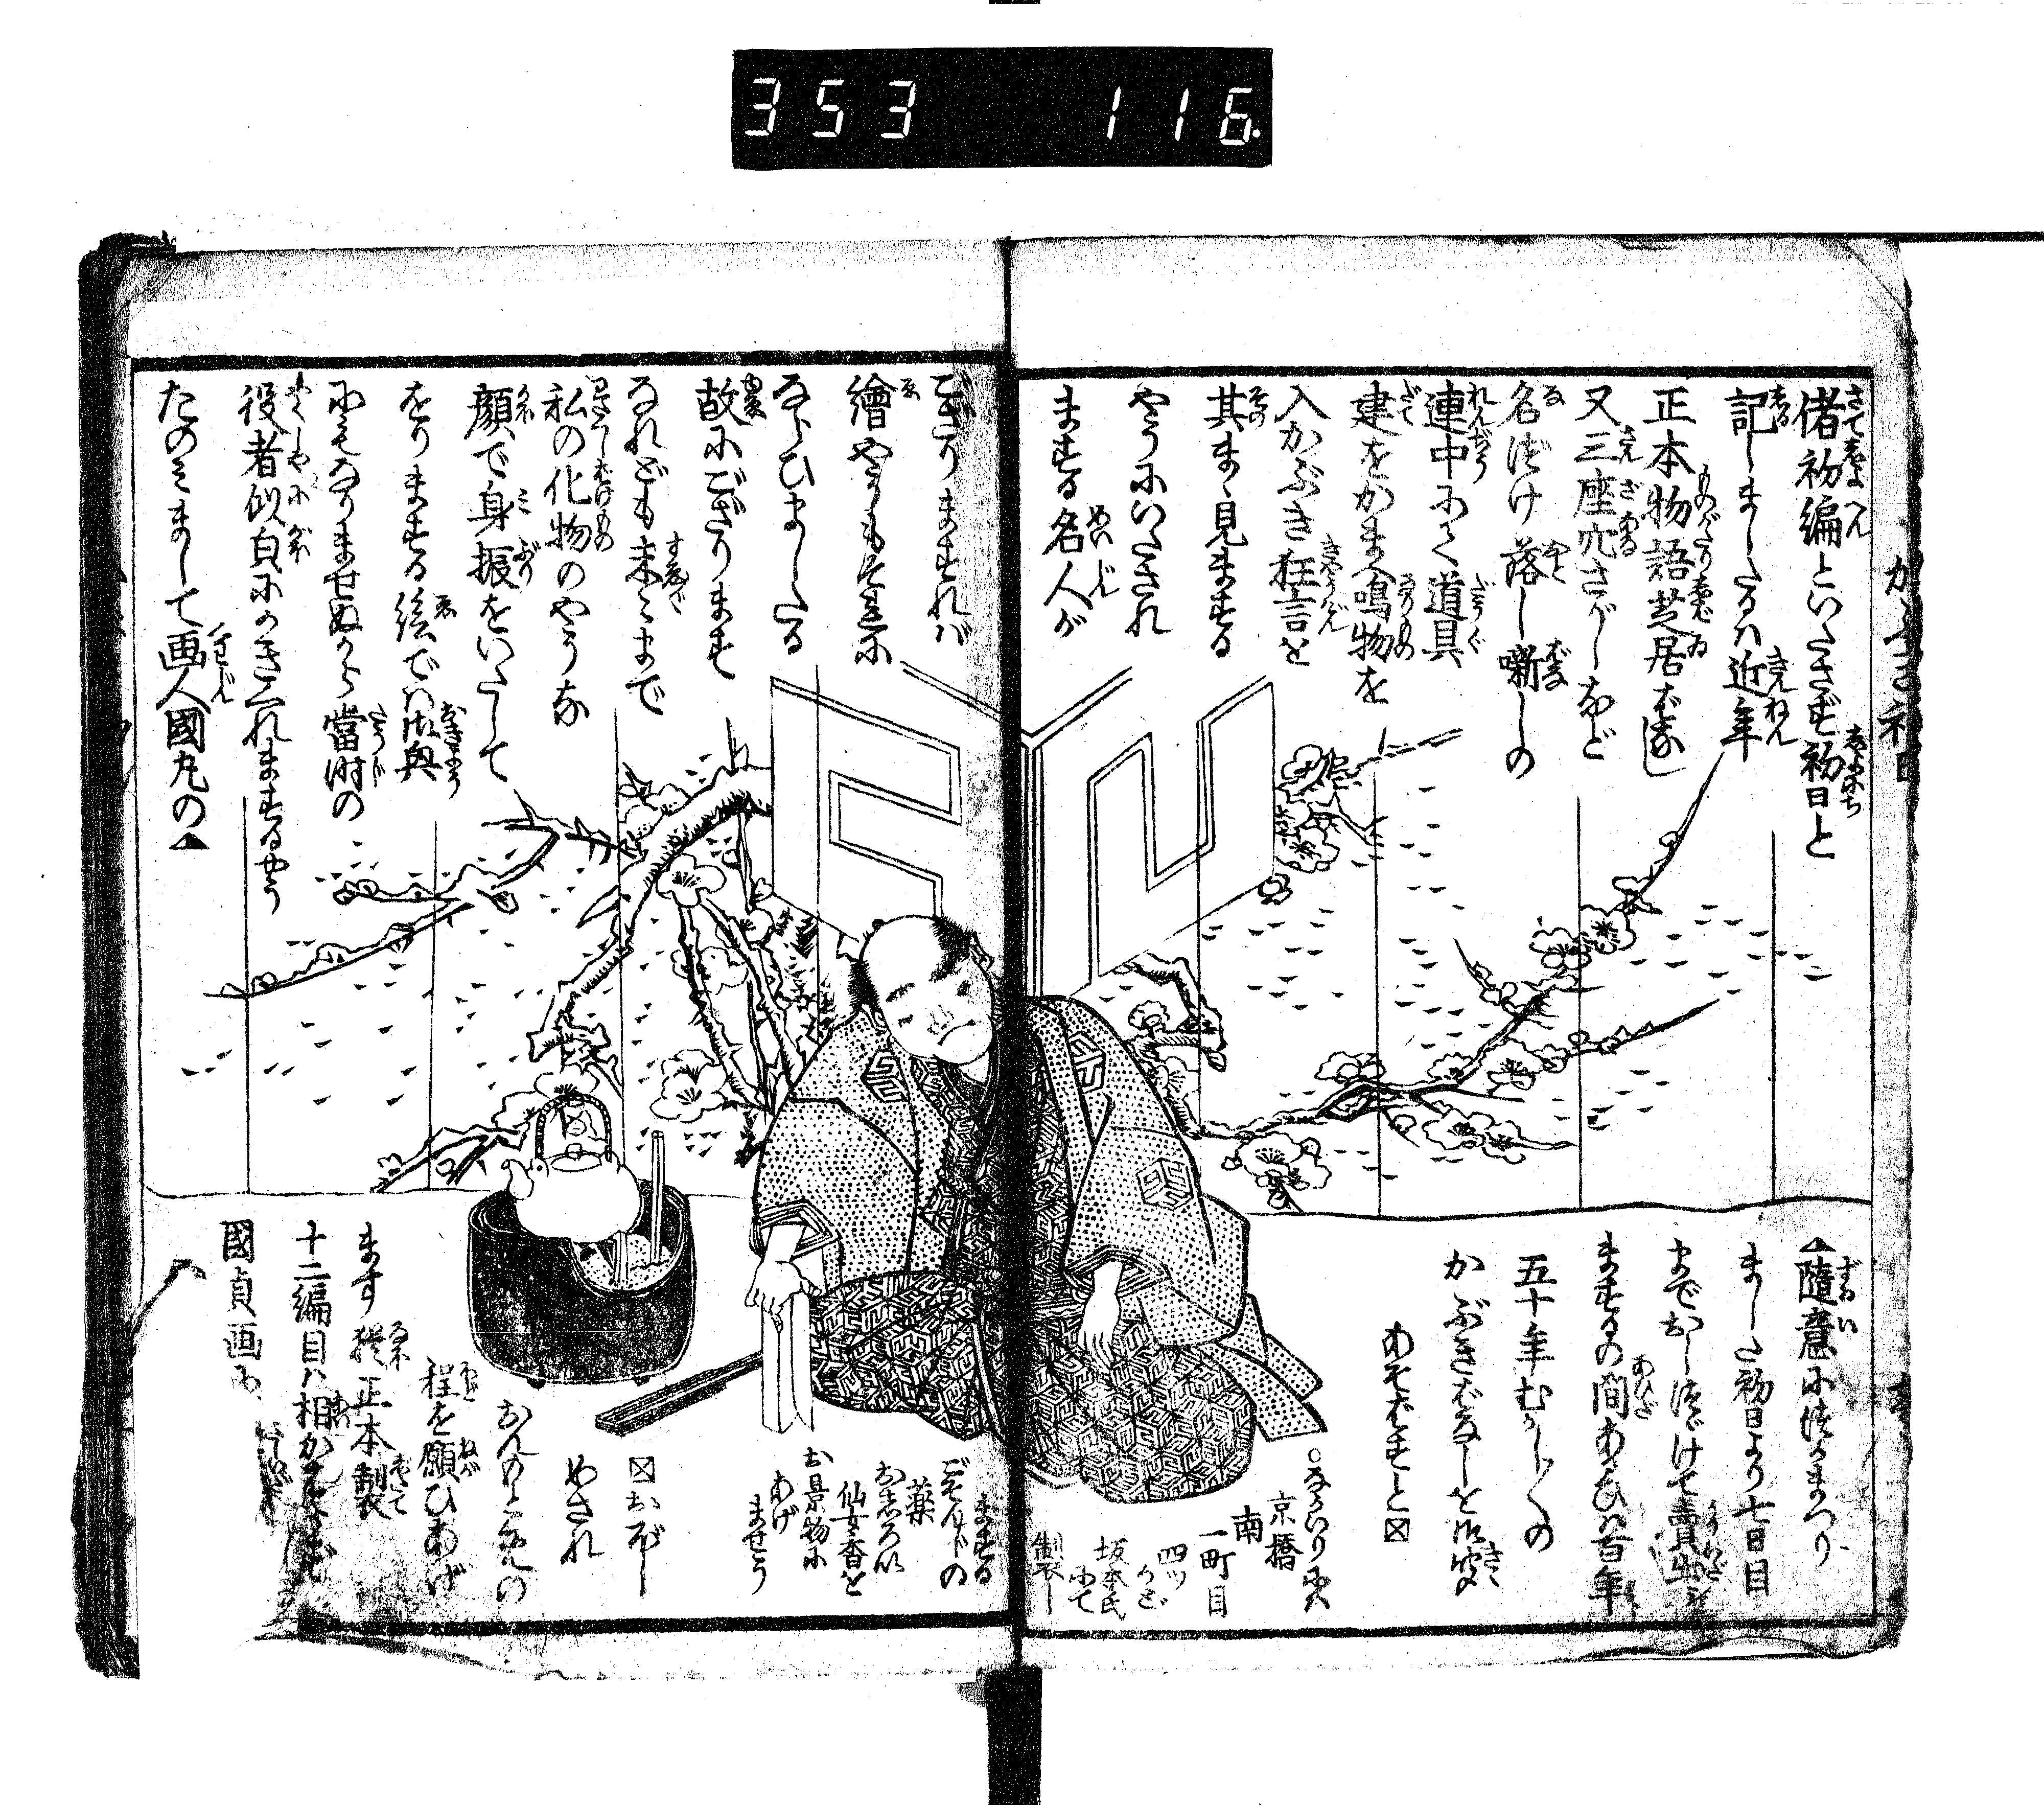 353 116.
偖初編といたさず初日と
記しましたるハ近年
正本物語芝居ばなし
又三座穴さがしなど
名づけ落し噺しの
連中にて道具
建をかまへ鳴物を
入かぶき狂言を
其まゝ見まする
やうにいたされ
まする名人が
ござりますれバ
繪やうもそれに
ならひましたる
故にござります
なれども未々まで
私の化物のやうな
顔で身振をいたして
をりまする絵でハ御興
にもなりませぬから當時の
役者似㒵にかき入れまするやう
たのみまして画人國丸の▲
▲隨意につかまつり
ました初日より七日目
までおしつゞけて賣出し
まするの間あひハ百年
五十年むかし〳〵の
かぶきばなしを御聞
あそばすと〼
○るゐり
京橋
南
一町目
四ツ
かど
坂本氏
にて
製し
まする
ぞんじの
薬
おしろい
仙女香を
お景物に
あげ
ませう
〼おぼし
めされ
おんもとめの
程を願ひあげ
ます 猶正本製
十二編目ハ相かはらず
國貞画